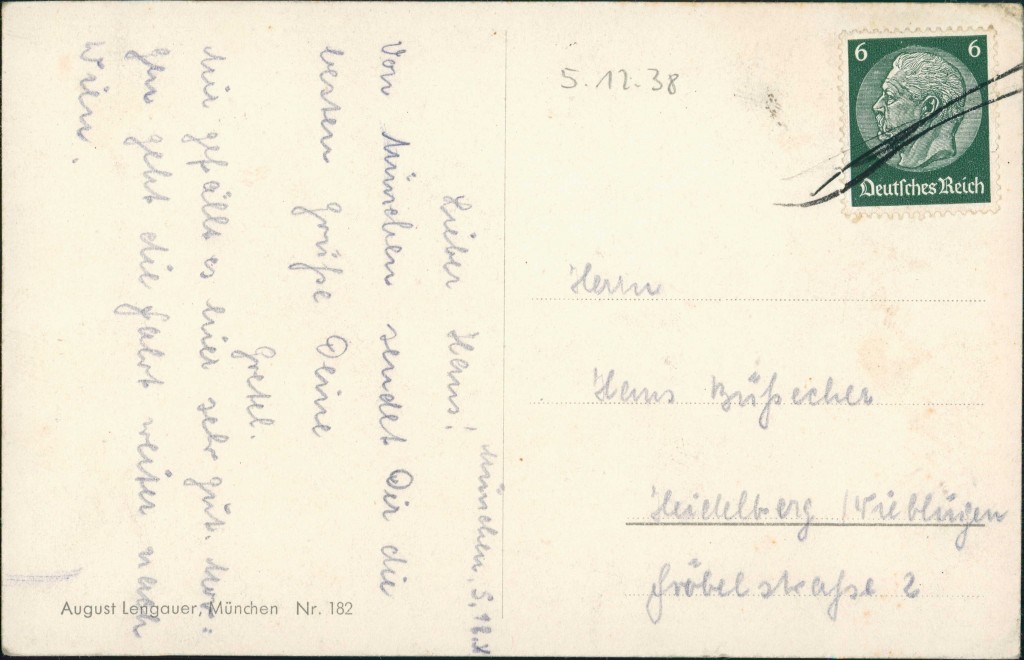 München, 5.12.38
Lieber Hans!
Von München sendet Dir die
besten Grüße Deine
Gretel.
Mir gefällt es hier sehr gut. Mor:
gen geht die Fahrt weiter nach
Wien.
5.12.38
6 6
Deutsches Reich
Herrn
Hans Büßecher
Heidelberg / Wieblingen
Fröbelstraße 2
August Lengauer, München Nr. 182